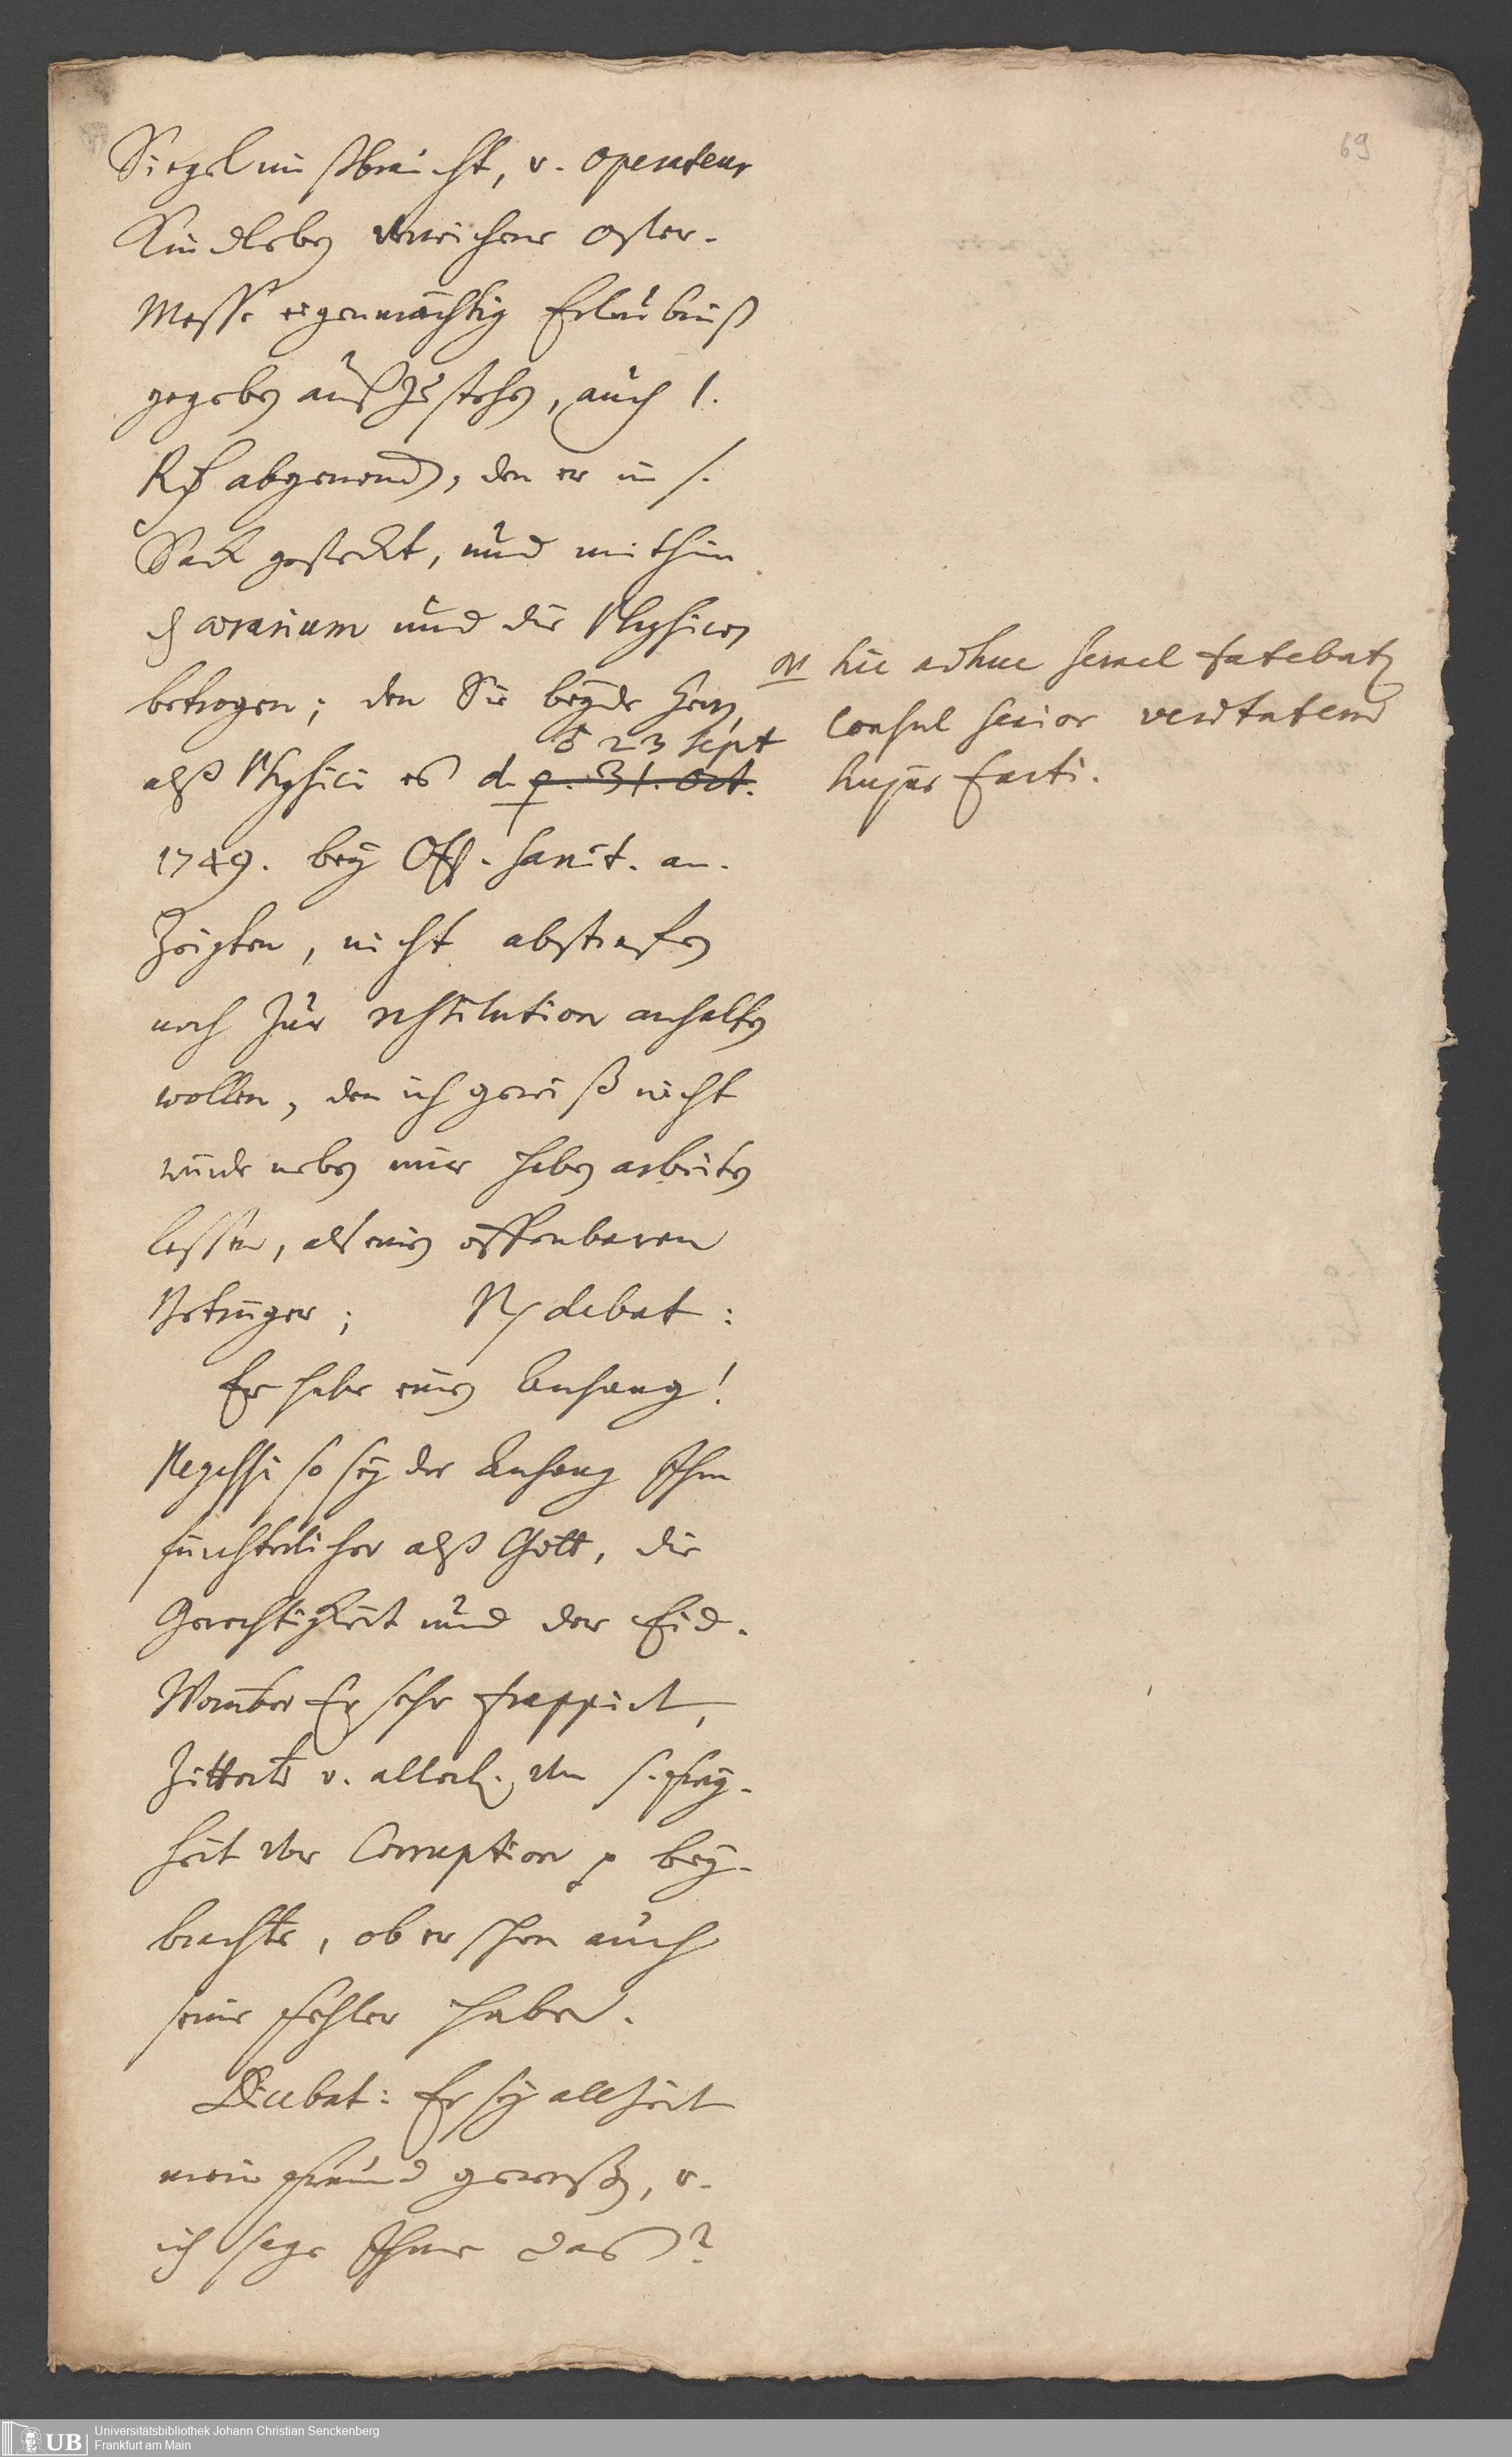 69
Siegel mißbraucht, v. operateur
Kindleben verwichene Oster-
Messe eigenmächtig Erlaubniß
gegeben außzustehen, auch 1.
Rth abgenom̄en, den er in s.
Sack gesteckt, und mithin
aerarium und die Physicos
betrogen; den Sie beyde Herrn
♂ 23 Sept
alß Physici es d. ♀. 31. Oct.
1749. bey Off. Sanit. an-
zeigten, nicht abstrafen
noch zur restitution anhalten
wollen, den ich gewiß nicht
würde neben mir haben arbeiten
lassen, als einen offenbaren
Betrüger; Rsdebat:
Er habe einen Anhang!
Regessi so sey der Anhang Ihm
fürchterlicher alß Gott, die
Gerechtigkeit und der Eid.
Worüber Er sehr frappirt,
zitterte v. allerl. von s. Frey-
heit von Corruption p bey-
brachte, ob er schon auch
seine Fehler habe.
Dicebat: Er sey allzeit
mein Freund geweßen, v.
ich sage Ihme das?
hic adhuc semel fatebatur
Consul senior veritatem
hujus facti.
Universitätsbibliothek Johann Christian Senckenberg
Frankfurt am Main
UB